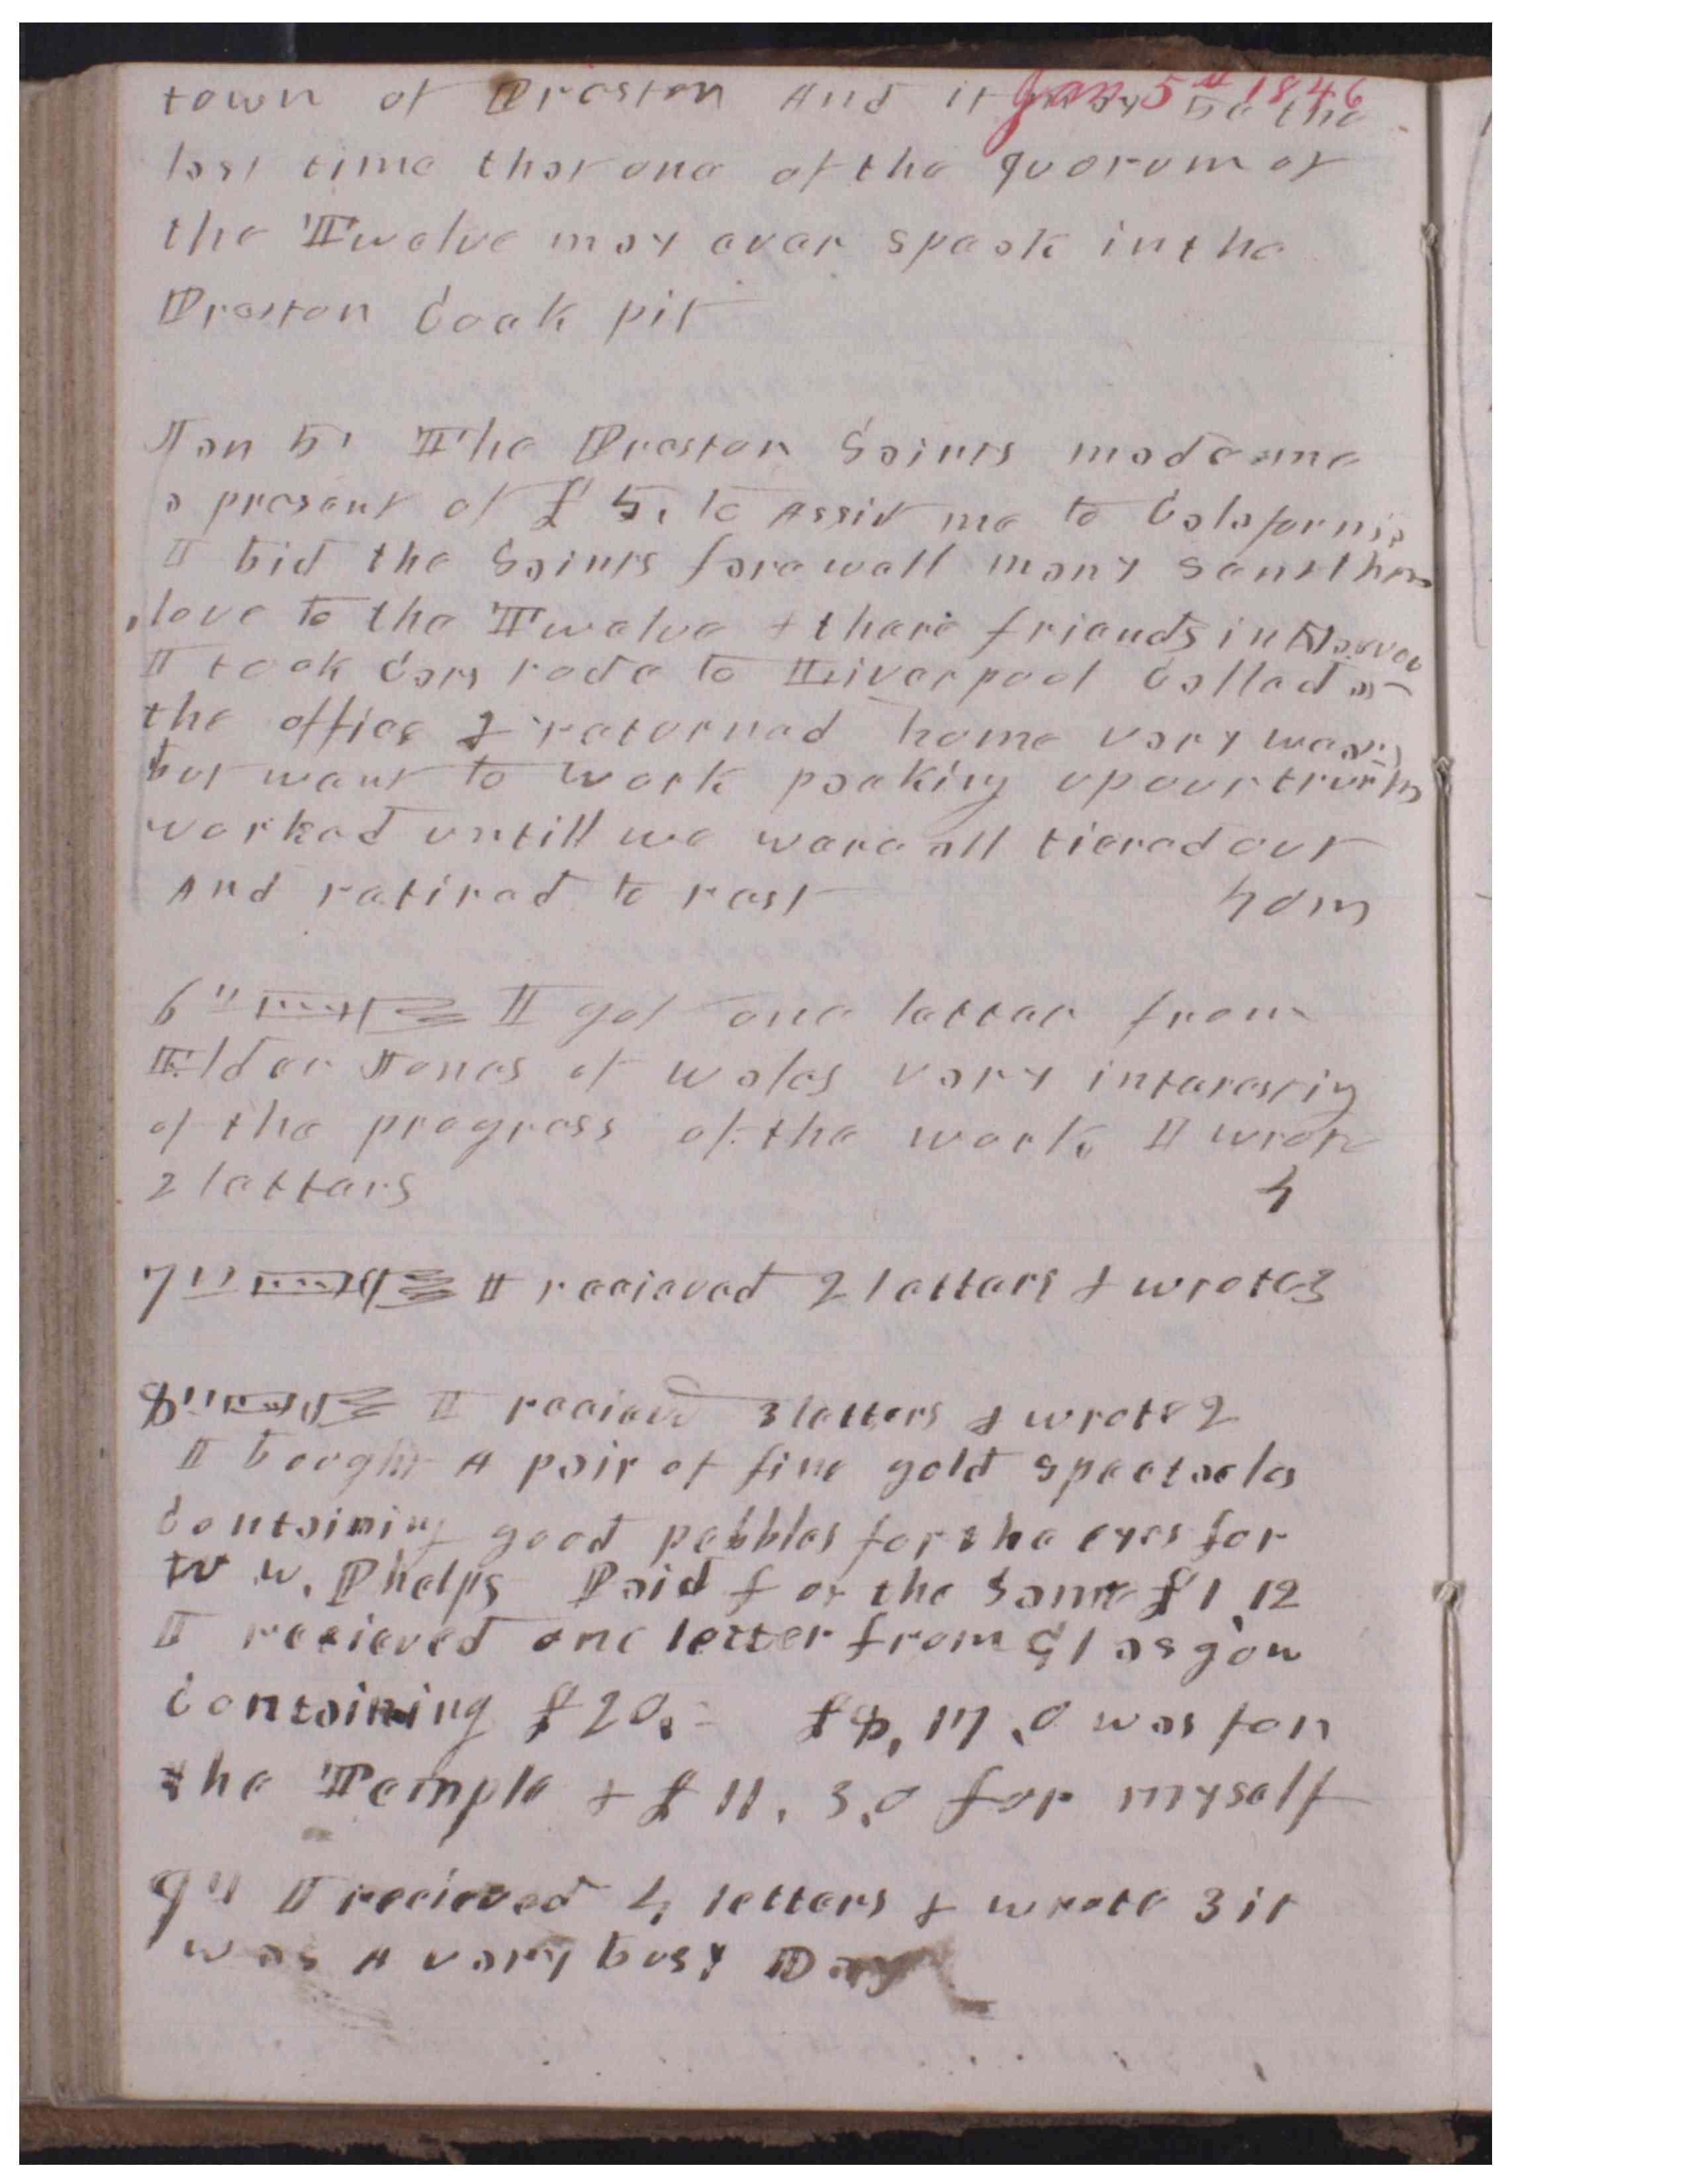 Jan 5th 1846
town of Preston And it may be the
last time that one of the quorum of
the Twelve may ever speak in the
Preston Cock pit
Jan 5th The Preston Saints made me
a present of £5. to Assist me to Calafornia
I bid the Saints farewell many sent there
love to the Twelve & there friends in Nauvoo
I took Cars rode to Liverpool Called at
the office & returned home very weary
but went to work packing up our trunks
worked untill we were all tiered out
And retired to rest
6" I got one letter from
Elder Jones of wales very interesting
of the progress of the work. I wrote
2 letters
7" I recieved 2 letters & wrote 3
8" I recieved 3 letters & wrote 2
I bought A pair of fine gold spectacles
Containing good pebbles for the eyes for
W w. Phelps Paid for the same £1,12
I recieved one letter from Glasgow
containing £20.- £8,17,0 was for
the Temple & £11,3,0 for myself
9" I recieved 4 letters & wrote 3 it
was A very busy Day